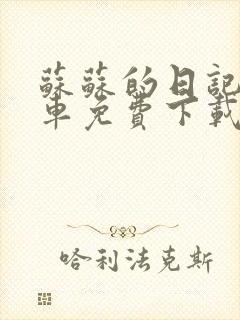 蘇蘇的日記
車免費下載
哈利法克斯